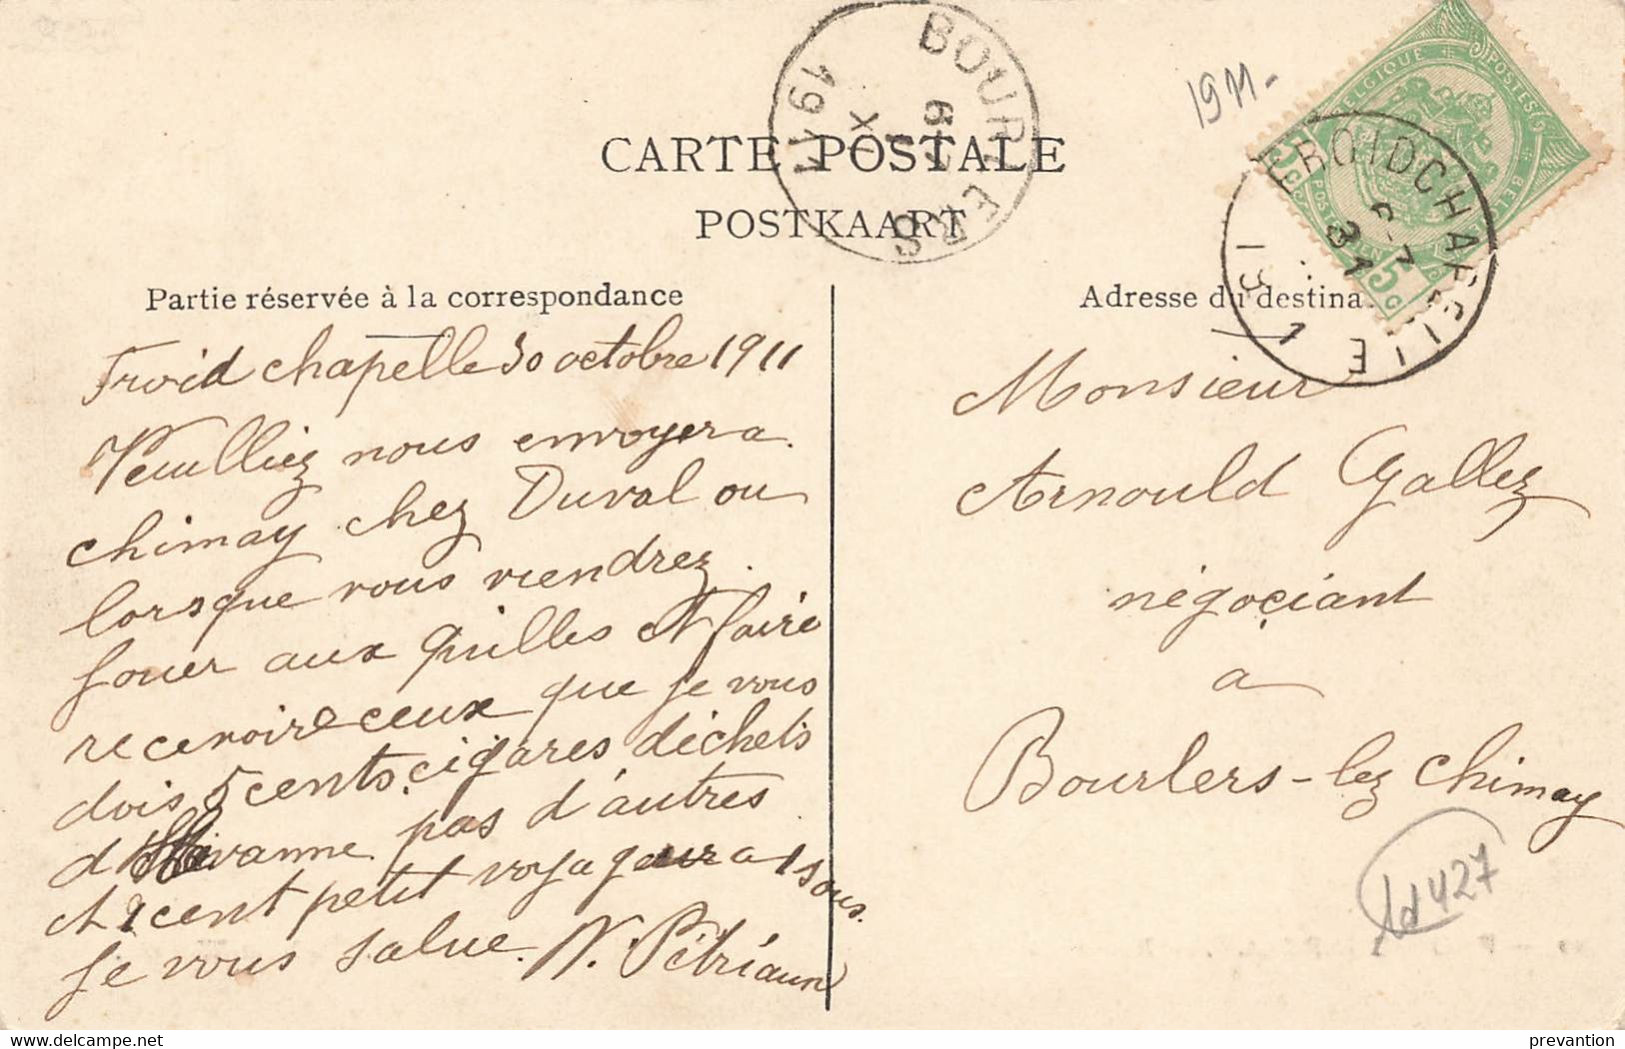 BOURLERS
1911
1911-
BELGIQUE
POSTES
5c
FROIDCHAPELLE
CARTE POSTALE
POSTKAART
Partie réservée à la correspondance
Adresse du destina
Froid chapelle 30 octobre 1911
Veuilliez nous envoyer a
chimay chez Duval ou
lorsque vous viendrez.
jouer aux quilles et faire
recevoire ceux que je vous
dois 5 cents cigares déchets
d'Havanne pas d'autres
et 1 cent petit voyageur a 1 sous.
je vous salue. N.
Monsieur
Arnould Gallez
négoçiant
a
Bourlers-lez chimay
1d 427
delcampe.net
prevantion